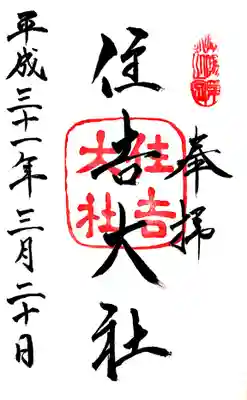 奉拝
住吉大社
住吉大社
平成三十一年三月二十日